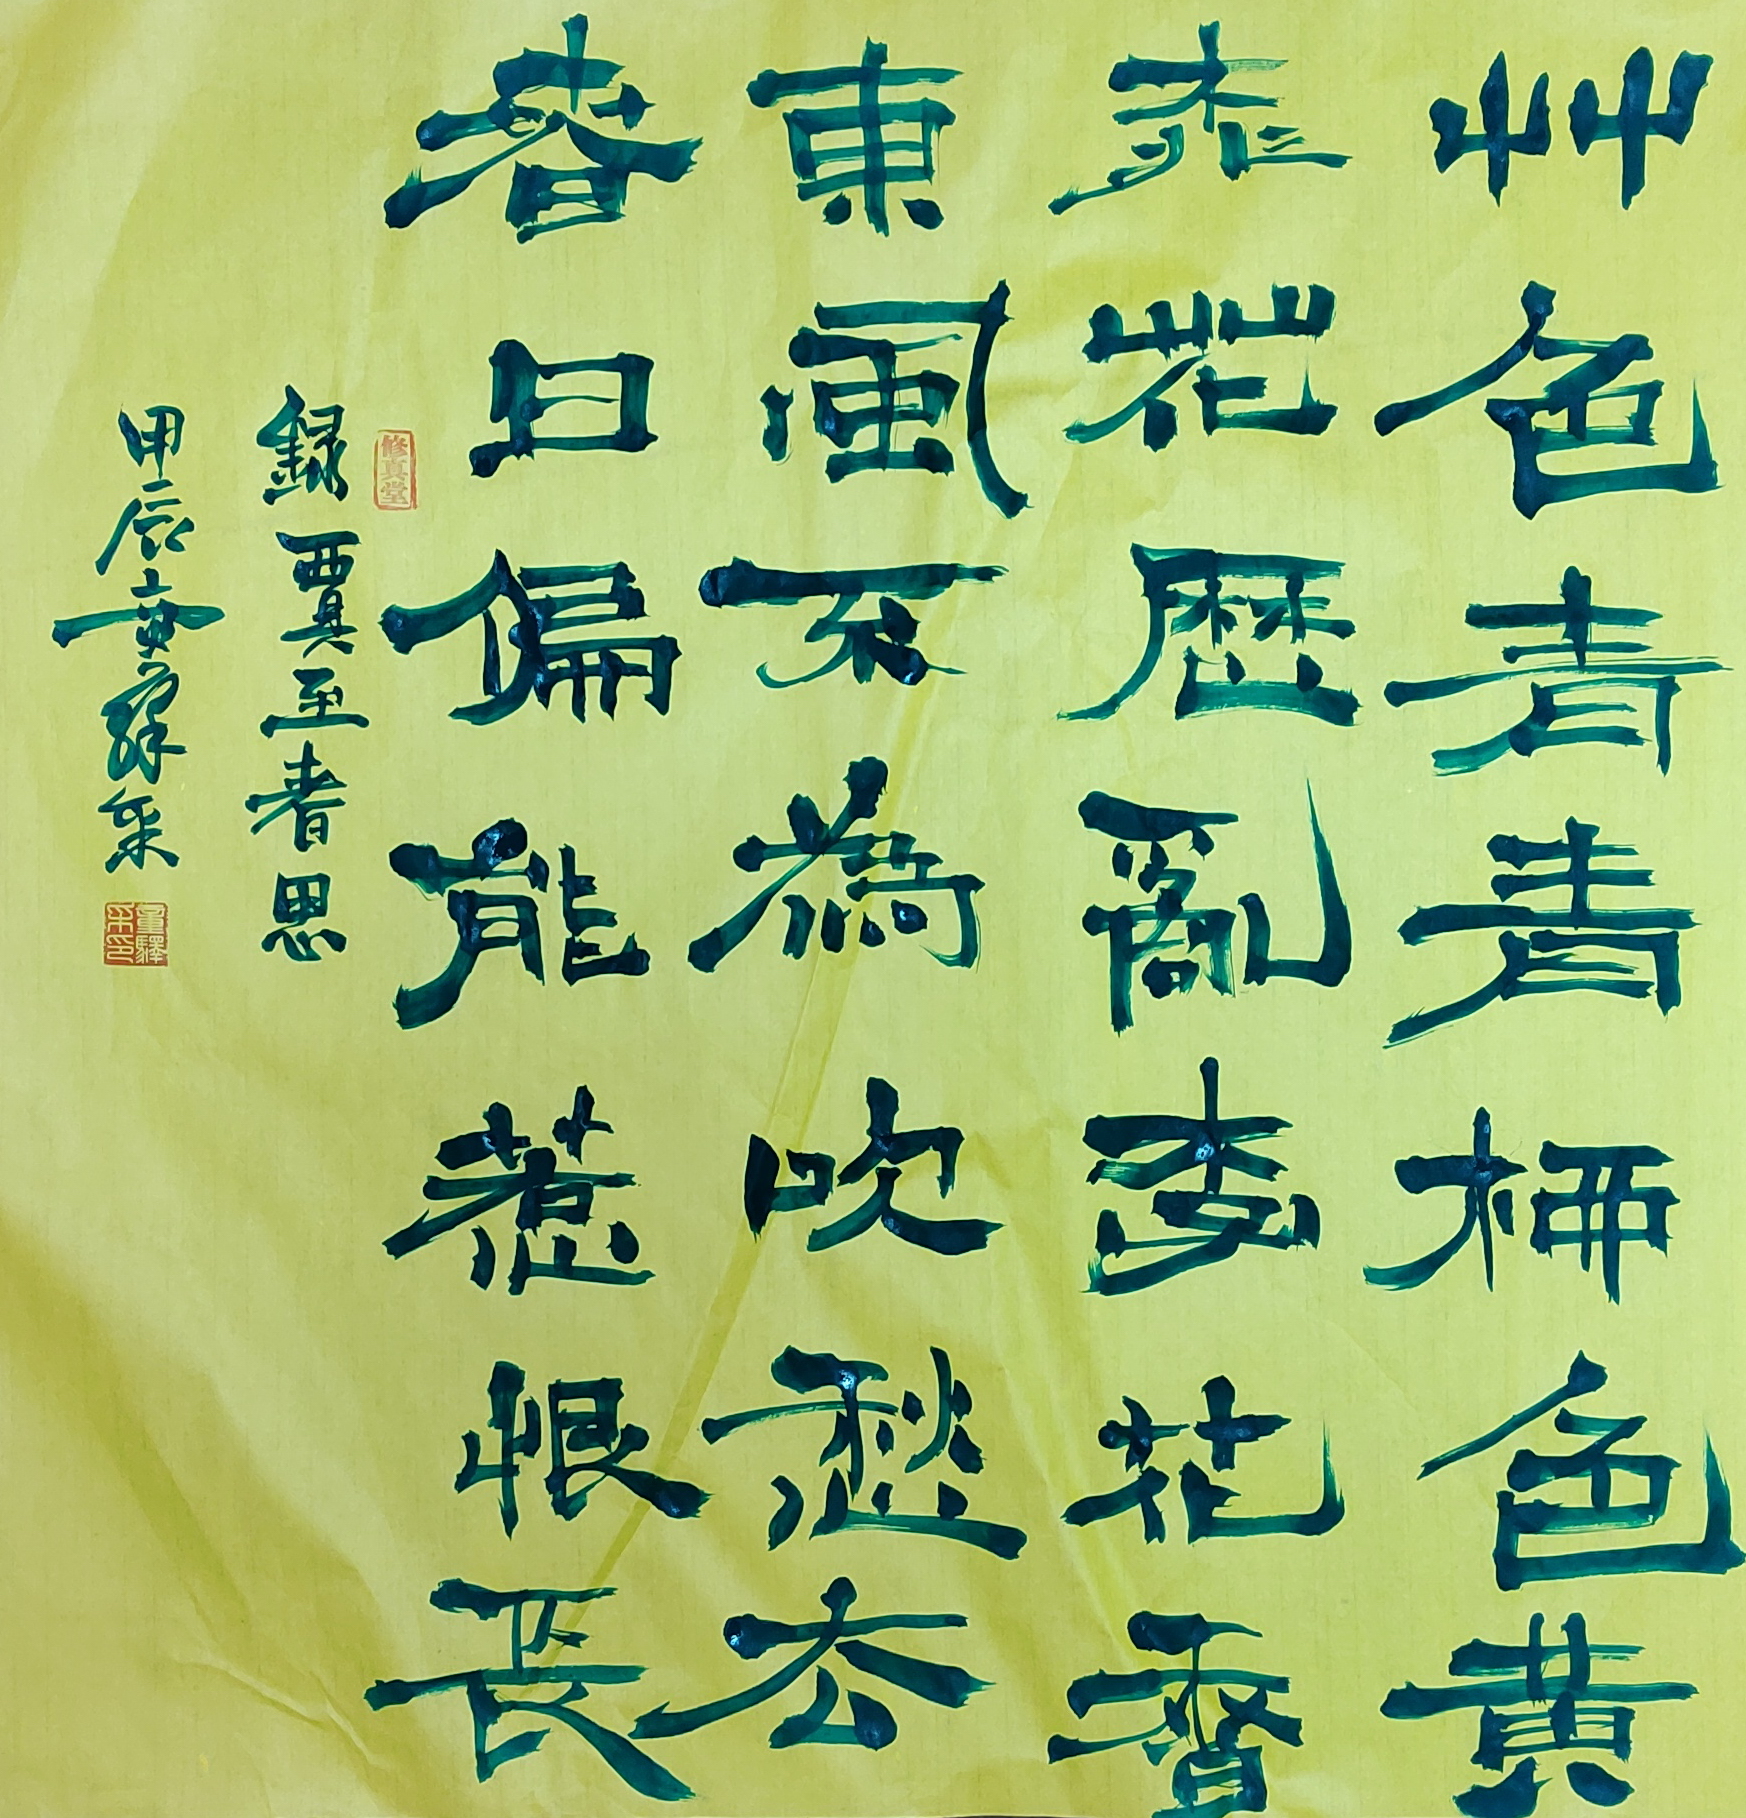 艸色青青栁色黄
桃花歷亂李花香
東風不為吹愁去
春日偏能惹恨長
錄賈至春思
甲辰童驛采
修真堂
童驛采印